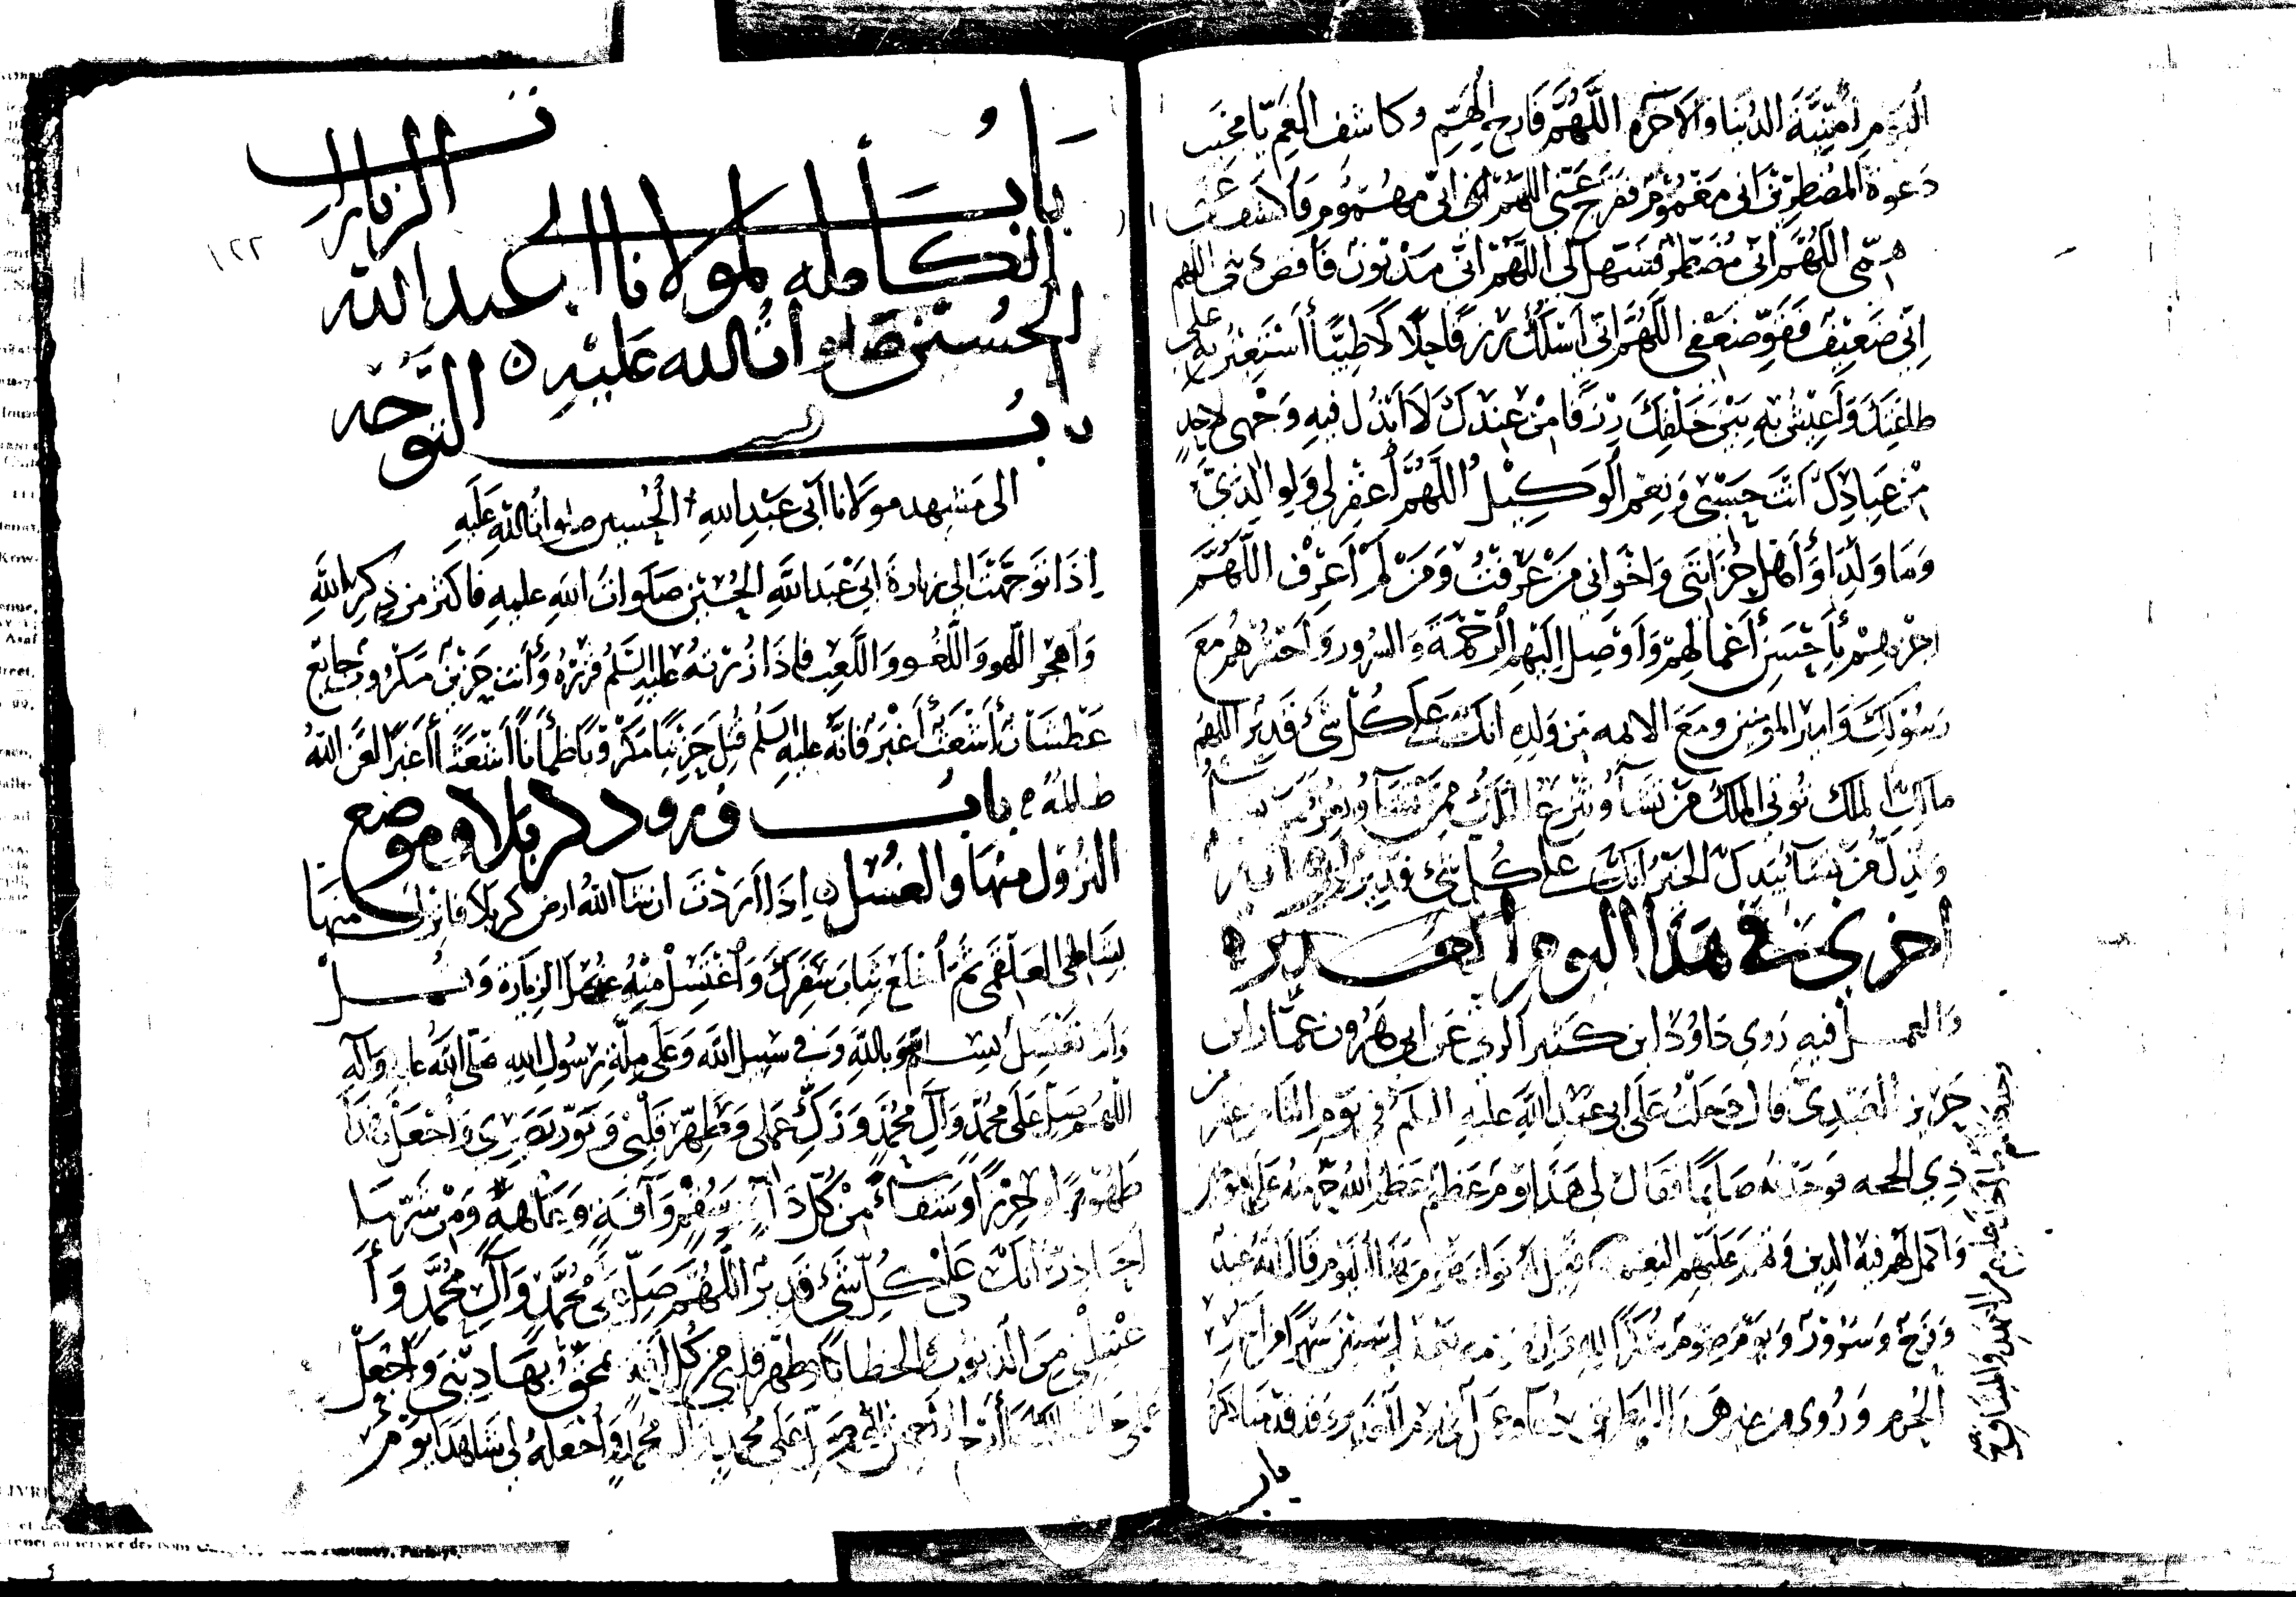 اليوم أمنية الدنيا والآخرة اللهم فارج الهم وكاشف الغم يا مجيب
دعوة المضطرين اني مغموم ففرج عني اللهم اني مهموم فاكشف عني
همي اللهم اني مضطر فسهل لي اللهم اني مديون فاقض ديني اللهم
اني ضعيف فقو ضعفي اللهم اني اسئلك رزقا حلالا طيبا أستعين به على
طاعتك وأعيش به بين خلقك رزقا من عندك لا ابذل فيه وجهي لاحد
من عبادك انت حسبي ونعم الوكيل اللهم اغفر لي ولوالدي
وما ولدا وأهل حزانتي واخواني من عرفت ومن لم اعرف اللهم
اجزهم بأحسن أعمالهم وأوصل اليهم الرحمة والسرور واحشرهم مع
رسولك وامير المؤمنين ومع الائمه من ولده انك على كل شئ قدير اللهم
مالك الملك تؤتي الملك من تشاء وتنزع الملك ممن تشاء وتعز من تشاء
وتذل من تشاء بيدك الخير انك على كل شئ قدير
اخرى في هذا اليوم
والعمل فيه روى داود ابن كثير الرقي عن ابي هرون عمار ابن
حريز العبدي قال دخلت على ابي عبد الله عليه السلم في يوم الثامن عشر من
ذي الحجه فوجدته صائما فقال لي هذا يوم عظيم عظم الله حرمته على المؤمنين
واكمل لهم فيه الدين وتمم عليهم النعمة فقيل له ما ثواب صوم هذا اليوم قال انه عيد
وفرح وسرور ويوم صوم شكرا لله وان صومه يعدل ستين شهرا من اشهر
الحرم وروى
باب
فى الزيارات
١٢٢
باب
الكاملة لمولانا ابي عبد الله
الحسين صلوات الله عليه
باب التوجه
الى مشهد مولانا أبي عبد الله الحسين صلوات الله عليه
إذا توجهت الى زيارة ابي عبد الله الحسين صلوات الله عليه فاكثر من ذكر الله
واهجر اللهو واللغو واللعب فاذا زرته عليه السلم فزره وأنت حزين مكروب جايع
عطشان أشعث أغبر فانه عليه السلم قتل حزينا مكروبا ظمآنا أشعثا أغبرا لعن الله
ظالمه باب ورود كربلا وموضع
النزول منها والغسل إذا أردت ان شاء الله ارض كربلا فانزل منها
بشاطى العلقمى ثم اخلع ثياب سفرك واغتسل منه غسل الزيارة وقل
وأنت تغتسل بسم الله وبالله وفي سبيل الله وعلى ملة رسول الله صلى الله عليه وآله
اللهم صل على محمد وآل محمد وزك عملي وطهر قلبي ونور بصري واجعل غسلي هذا
طهورا وحرزا وشفاء من كل داء وسقم وآفة وعاهة ومن شر ما
احاذر انك على كل شئ قدير اللهم صل على محمد وآل محمد وا
غسلني من الذنوب والخطايا وطهر قلبي من كل آفة تمحق بها ديني واجعل
عملي خالصا يا أرحم الراحمين اللهم صل على محمد وآل محمد واجعله لي شاهدا يوم